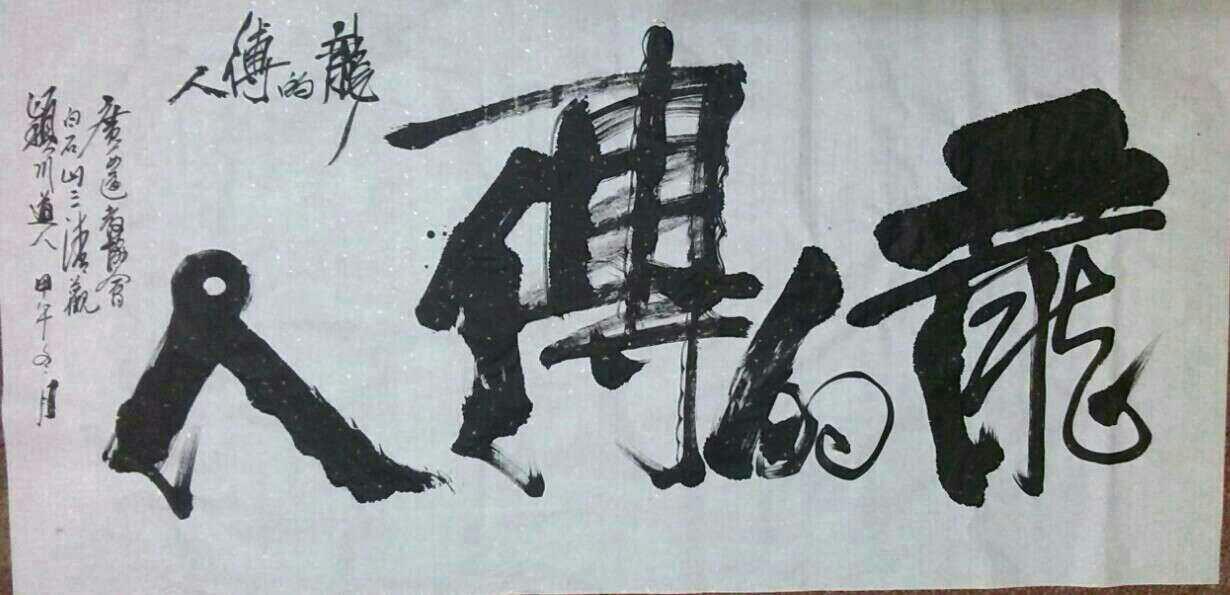 龍的傳人
龍的傳人
廣西道教協會
白石山三清觀
潁川道人 甲午年 月